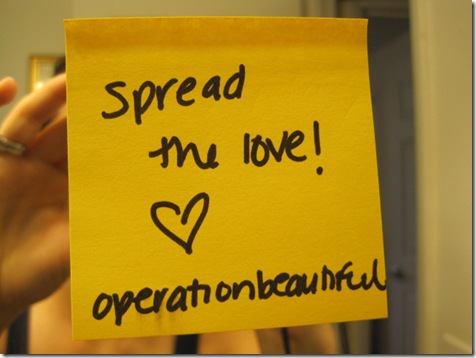 spread
the love!
operationbeautiful